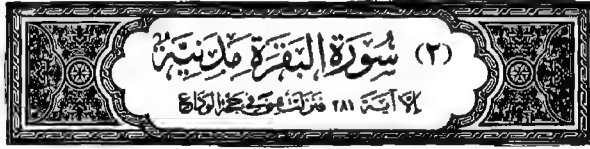 (٢) سُورَةُ الْبَقَرَةِ مَدَنِيَّةٌ
إلّا آية ٢٨١ فنزلت بمنى في حجة الوداع